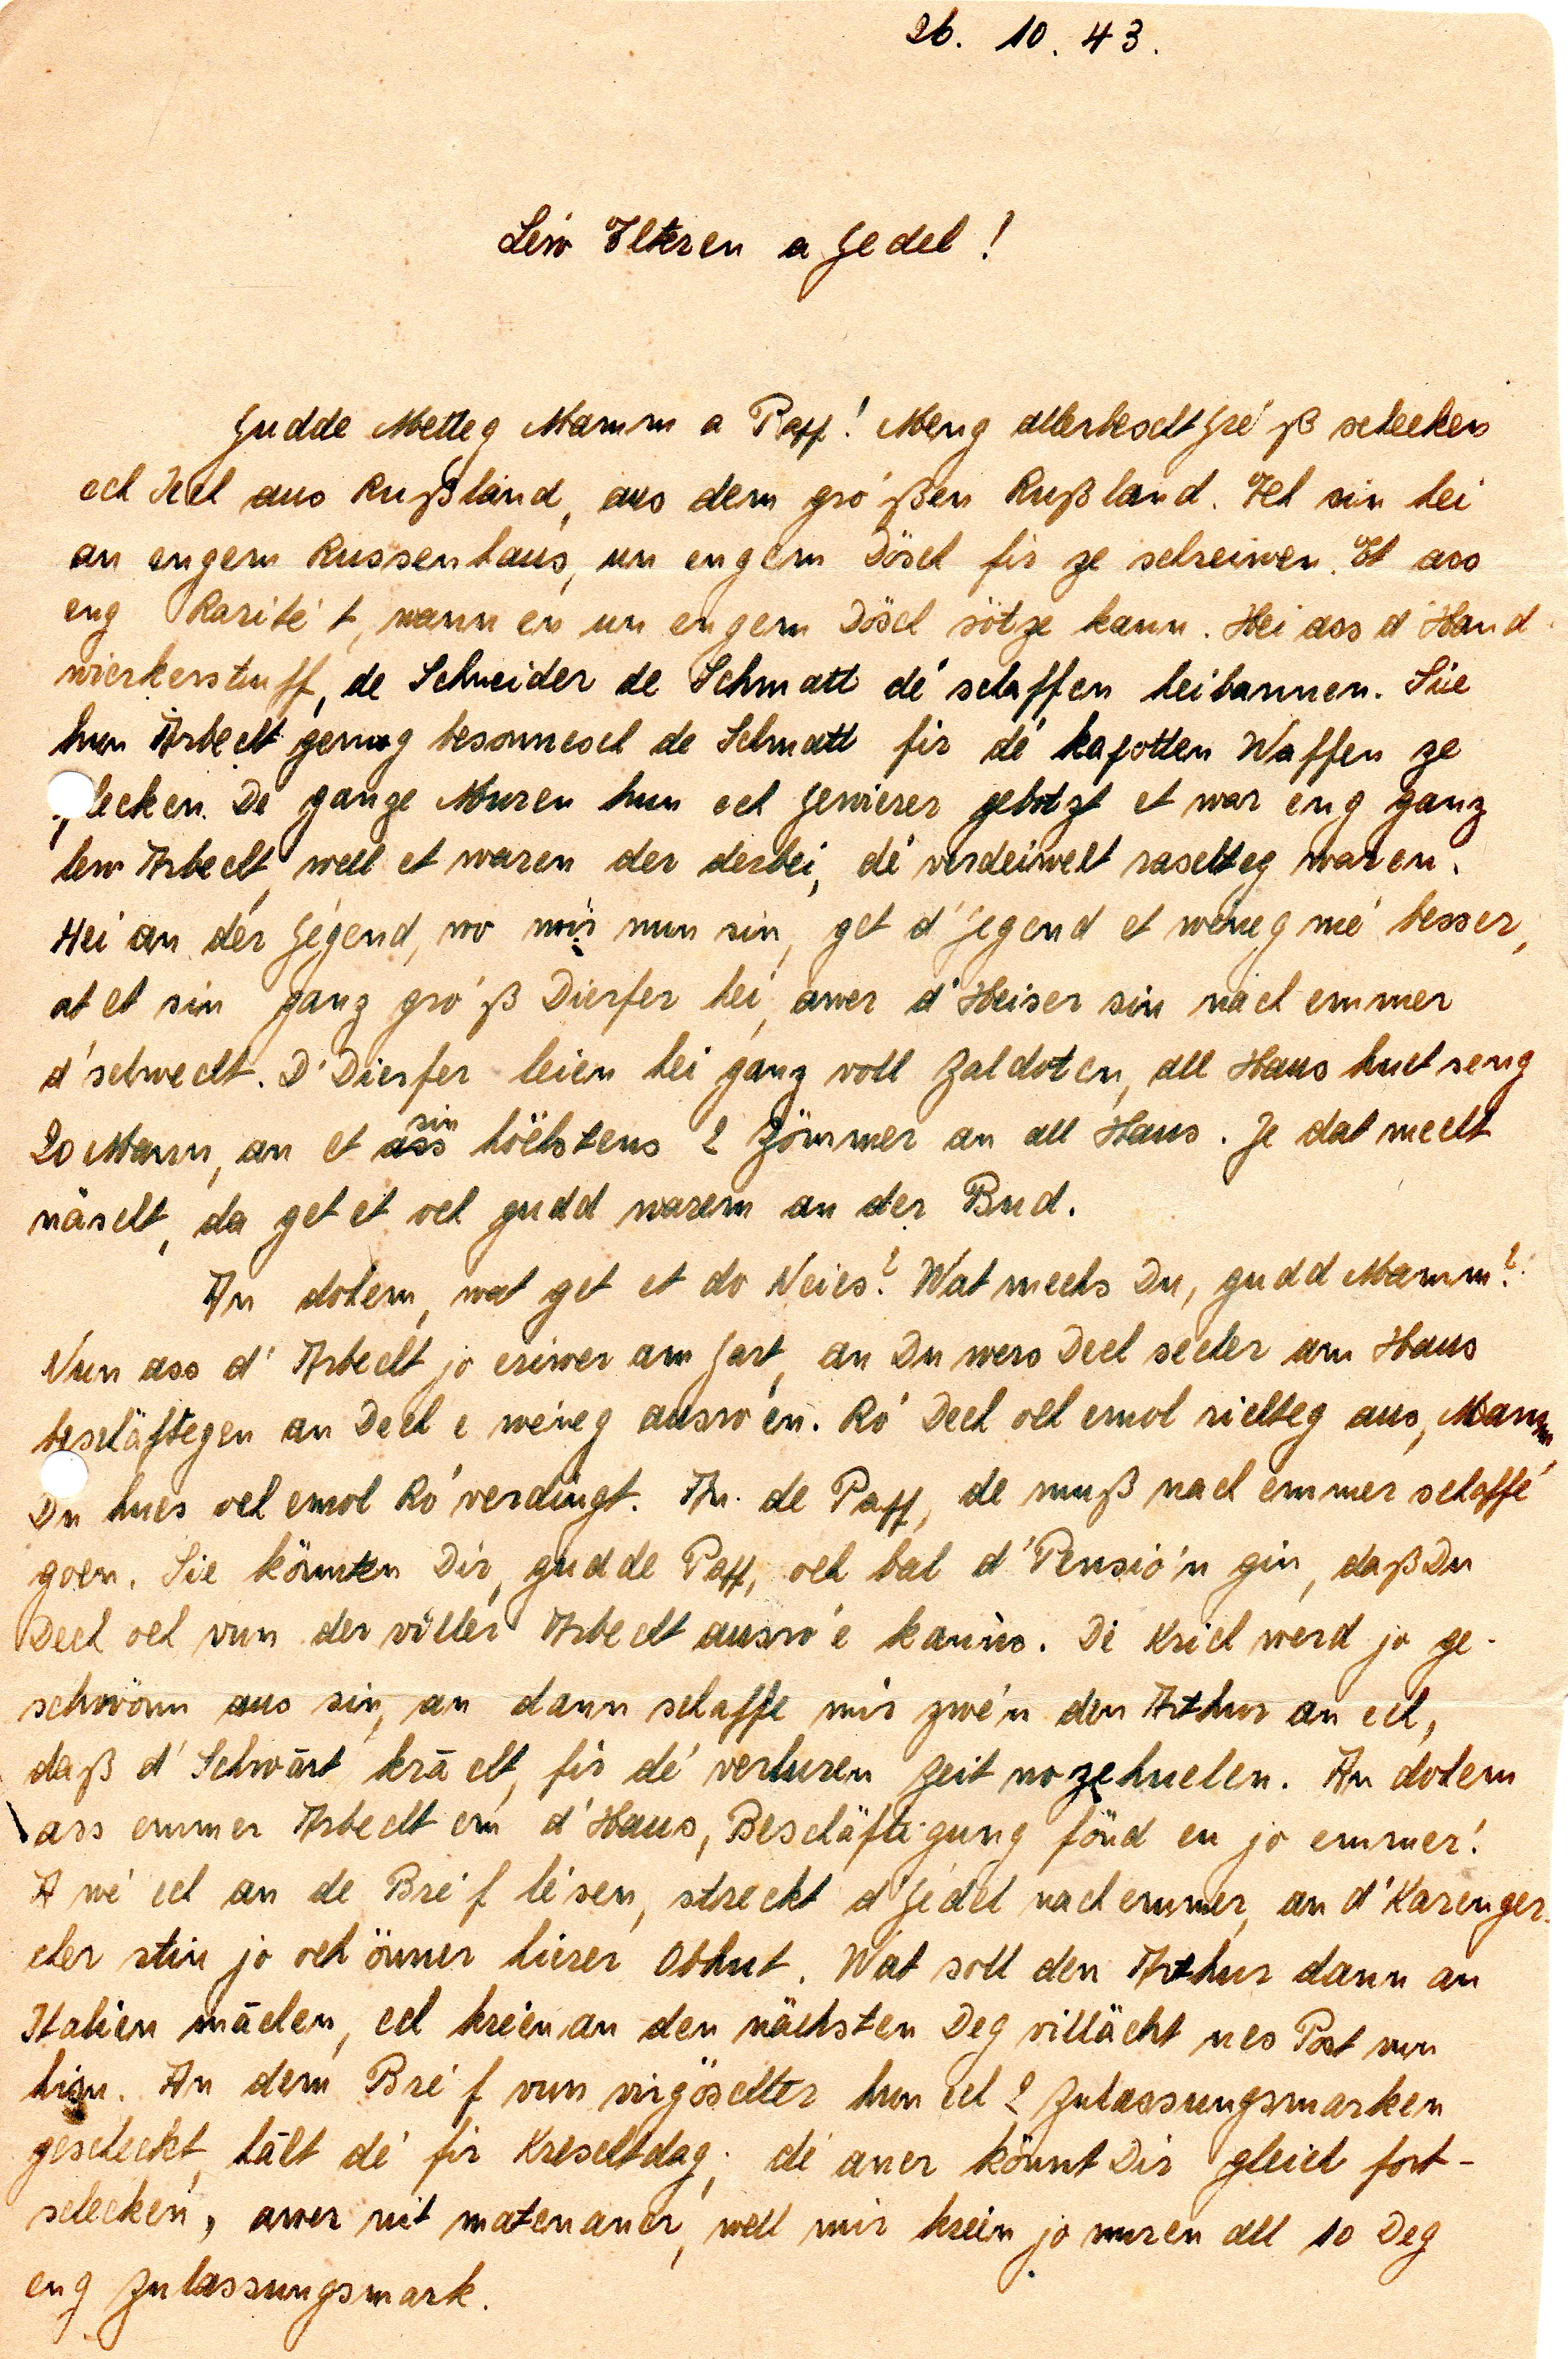 26. 10. 43.
Léiw Elteren a Jedel!
Gudde Metteg Mamm a Papp! Meng allerbescht Gré'ß schecken
ech Iech aus Rußland, aus dem gro'ßen Rußland. Ech sin hei
an engem Russenhaus, un engem Dösch fir ze schreiwen. Et ass
eng Rarité't, wann en un engem Dösch sötze kann. Hei ass d'Hand-
wierkerstuff, de Schneider de Schmatt dé schaffen heibannen. Sie
hun Arbecht genug besonnesch de Schmatt fir dé kapotten Waffen ze
flecken. De ganze Muren hun ech Gewierer gebotzt et war eng ganz
lew Arbecht, well et waren der derbei, dé verdeiwelt raschteg waren.
Hei an dér Gégend, wo mir nun sin, get d'Gegend et wéneg mé besser,
at et sin ganz gro'ß Dierfer hei, awer d'Heiser sin nach emmer
d'selwecht. D'Dierfer leien hei ganz voll Zaldoten, all Haus huet seng
20 Mann, an et ass sin höchstens 2 Zömmer an all Haus. Je dat mecht
näscht, da get et och gudd warem an der Bud.
An dohem, wat get et do Neies? Wat mechs Du, gudd Mamm?
Nun ass d'Arbecht jo eriwer am Gart, an Du wers Dech secher am Haus
beschäftegen an Dech e wéneg ausro'en. Ro' Dech och emol richteg aus, Mamm,
Du hues och emol Ro' verdingt. An de Papp, de muß nach emmer schaffé
goen. Sie könnten Dir, gudde Papp, och bal d'Pensio'n gin, daß Du
Dech och vun der viller Arbecht ausro'e kanns. De Krich werd jo ge-
schwönn aus sin, an dann schaffe mir zwé'n den Arthur an ech,
daß d'Schwārt krācht, fir dé verluren Zeit nozehuelen. An dohem
ass emmer Arbecht em d'Haus, Beschäftigung fönd en jo emmer!
A wé ech an de Bré'f lésen, streckt d'Jédel nach emmer, an d'Karenger-
cher stin jo och önner hierer Obhut. Wat soll den Arthur dann an
Italien māchen, ech kréien an den nächsten Deg villächt nes Post vun
him. An dem Bré'f vun virgöschter hun ech 2 Zulassungsmarken
gescheckt, hālt dé fir Kreschtdag; dé aner könnt Dir gleich fort-
schecken, awer nit matenaner, well mir kréin jo nuren all 10 Deg
eng Zulassungsmark.